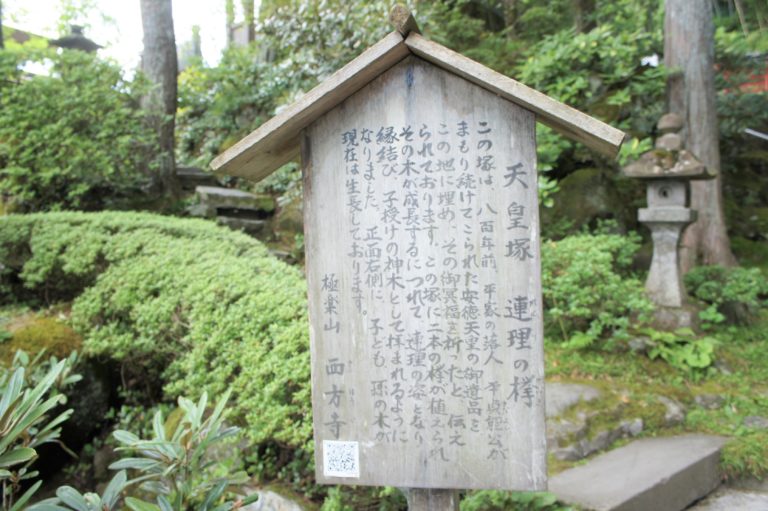 天皇塚 連理の欅
この塚は、八百年前、平家の落人 平貞能公が
まもり続けてこられた安徳天皇の御遺品を
この地に埋め、その御冥福を祈ったと、伝え
られております。この塚に二本の欅が植えられ
その木が成長するにつれて、連理の姿となり、
縁結び、子授けの神木として拝まれるように
なりました。正面右側に、子ども、孫の木が
現在は生長しております。
極楽山 西方寺